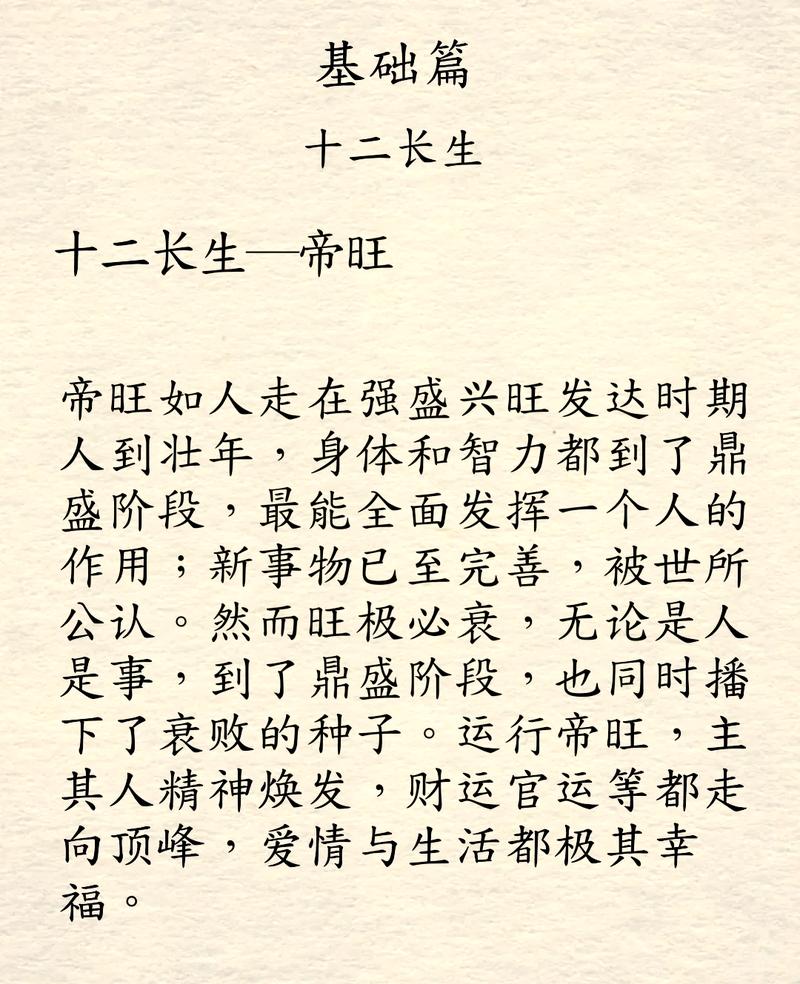 基础篇
十二长生
十二长生—帝旺
帝旺如人走在强盛兴旺发达时期
人到壮年，身体和智力都到了鼎
盛阶段，最能全面发挥一个人的
作用；新事物已至完善，被世所
公认。然而旺极必衰，无论是人
是事，到了鼎盛阶段，也同时播
下了衰败的种子。运行帝旺，主
其人精神焕发，财运官运等都走
向顶峰，爱情与生活都极其幸
福。